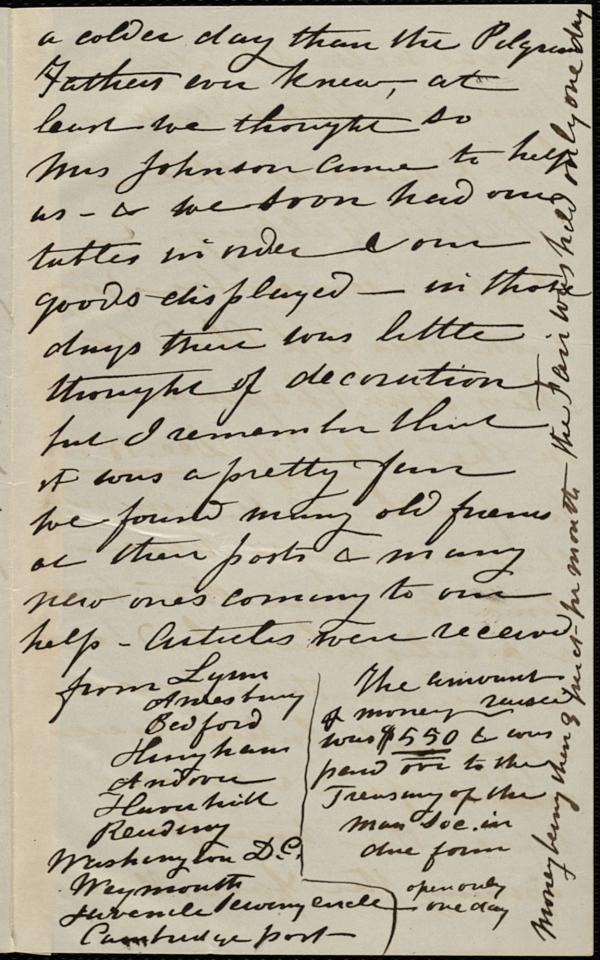 a colder day than the Pilgrim
Fathers ever knew, at
least we thought so
Mrs Johnson came to help
us - & we soon had our
tables in order & our
goods displayed — in those
days there was little
thought of decoration
but I remember that
it was a pretty fair
We found many old friends
at their posts & many
new ones coming to our
help - Articles were received
from Lynn
Amesbury
Bedford
Hingham
Andover
Haverhill
Reading
Washington D.C.
Weymouth
Juvenile Sewing circle
Cambridge port
The amount
of money raised
was $550 & was
paid over to the
Treasury of the
Mass Soc. in
due form
open only
one day
Money being then 3 per ct. pr month - the Fair was held only one day